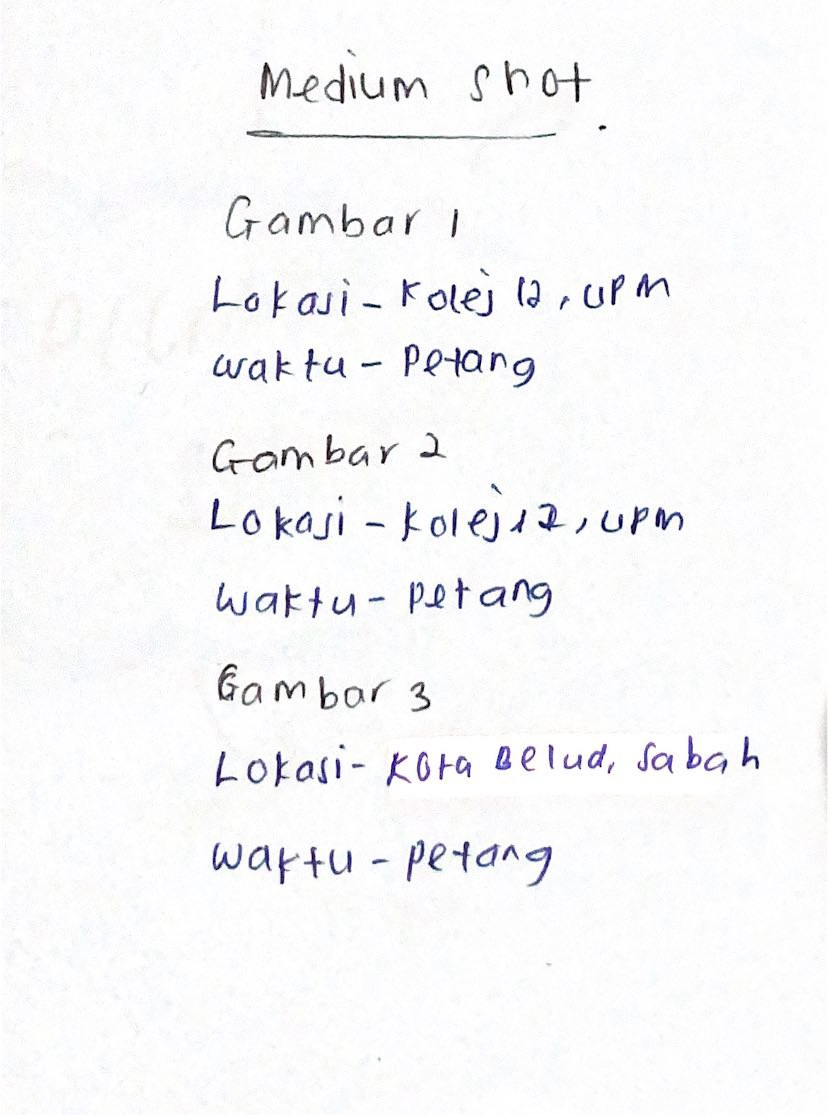 Medium shot.
Gambar 1
Lokasi - Kolej 12, UPM
waktu - Petang
Gambar 2
Lokasi - Kolej 12, UPM
waktu - petang
Gambar 3
Lokasi - Kota Belud, Sabah
waktu - petang